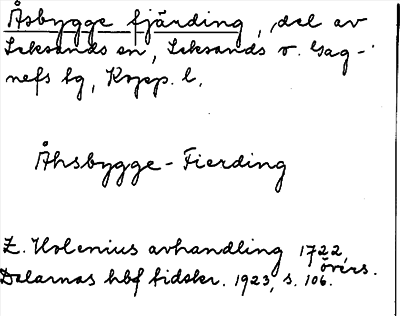 Åsbygge fjärding, del av
Leksands sn, Leksands o. Gag-
nefs tg, Kopp. l.
Åhsbygge-Fierding
Z. Holenius avhandling 1722,
övers.
Dalarnas hbf tidskr. 1923, s. 106.